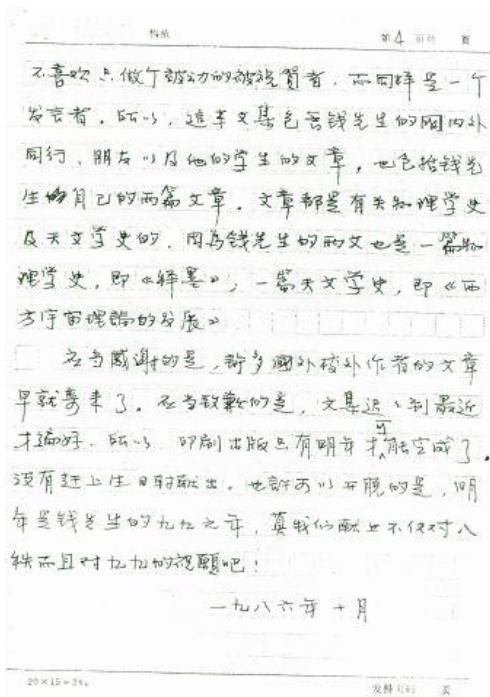 稿纸 第 4 页
不喜欢只做个被动的被祝贺者，而同样是一个
发言者。所以，这本文集包含钱先生的国内外
同行，朋友以及他的学生的文章，也包括钱先
生的自己的两篇文章。文章都是有关物理学史
及天文学史的，因为钱先生的两文也是一篇物
理学史，即《释墨》，一篇天文学史，即《西
方宇宙理论的发展》
应当感谢的是，许多国外校外作者的文章
早就寄来了。应当致歉的是，文集迟迟到最近
才编好。所以，印刷出版只有明年才可能完成了，
没有赶上生日时献出。也许可以开脱的是，明
年是钱先生的九九之年，算我们献上不仅对八
秩而且对九九的祝愿吧！
一九八六年十月
20×15=300
页